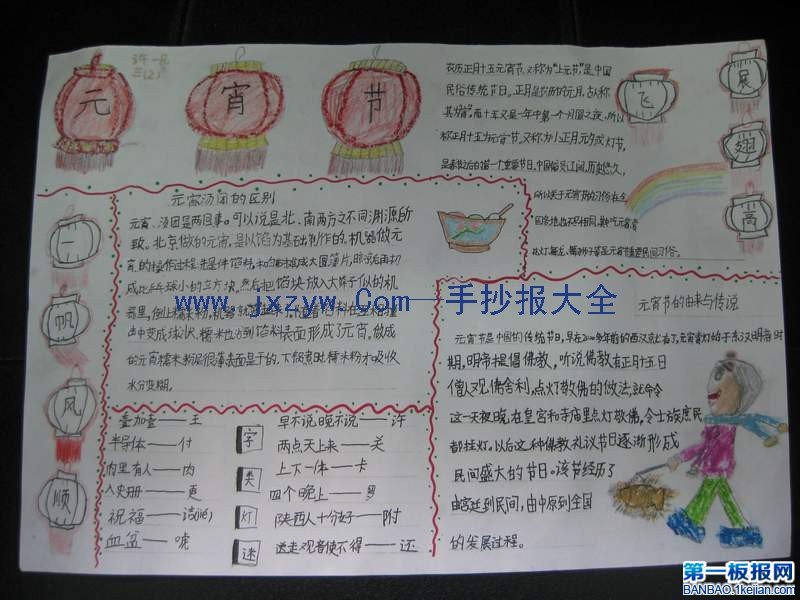 许一凡
三(2)
元宵节
农历正月十五元宵节,又称为"上元节",是中国
民俗传统节日。正月是农历的元月,古人称
其为"宵",而十五又是一年中第一个月圆之夜,所以
称正月十五为元宵节。又称为小正月、元夕或灯节,
是春节之后的第一个重要节日。中国幅员辽阔,历史悠久,
所以关于元宵节的习俗在全
国各地也不尽相同,其中吃元宵
飞
展
翅
高
一
帆
风
顺
元宵汤团的区别
元宵、汤团是两回事。可以说是北、南两方之不同渊源所
致。北京做的元宵,是以馅为基础制作的。机器做元
宵的操作过程
成比乒乓球小的立方块。然后把馅块放入大筛子似的机
器里,倒上糯米粉,
撞中变成球状,糯米也沾到馅料表面形成了元宵。做成
的元宵糯米粉层很薄表面是干的。下锅煮时糯米粉才吸收
水分变糊。
www.jxzyw.Com—手抄报大全
元宵节的由来与传说
元宵节是中国的传统节日,早在2000多年前的西汉就有了,元宵赏灯始于东汉明帝时
期,明帝提倡佛教,听说佛教有正月十五日
僧人观佛舍利,点灯敬佛的做法,就命令
这一天夜晚,在皇宫和寺庙里点灯敬佛,令士族庶民
都挂灯。以后这种佛教礼议节日逐渐形成
民间盛大的节日。该节经历了
由宫廷到民间,由中原到全国
的发展过程。
叠加叠——王
半导体——付
内里有人——肉
祝福——
血盆——唬
字
类
灯
谜
早不说,晚不说——许
两点天上来——关
上下一体——卡
四个晚上——罗
陕西人十分好——附
送走观者使不得——还
第一板报网
BANBAO.1kejian.com